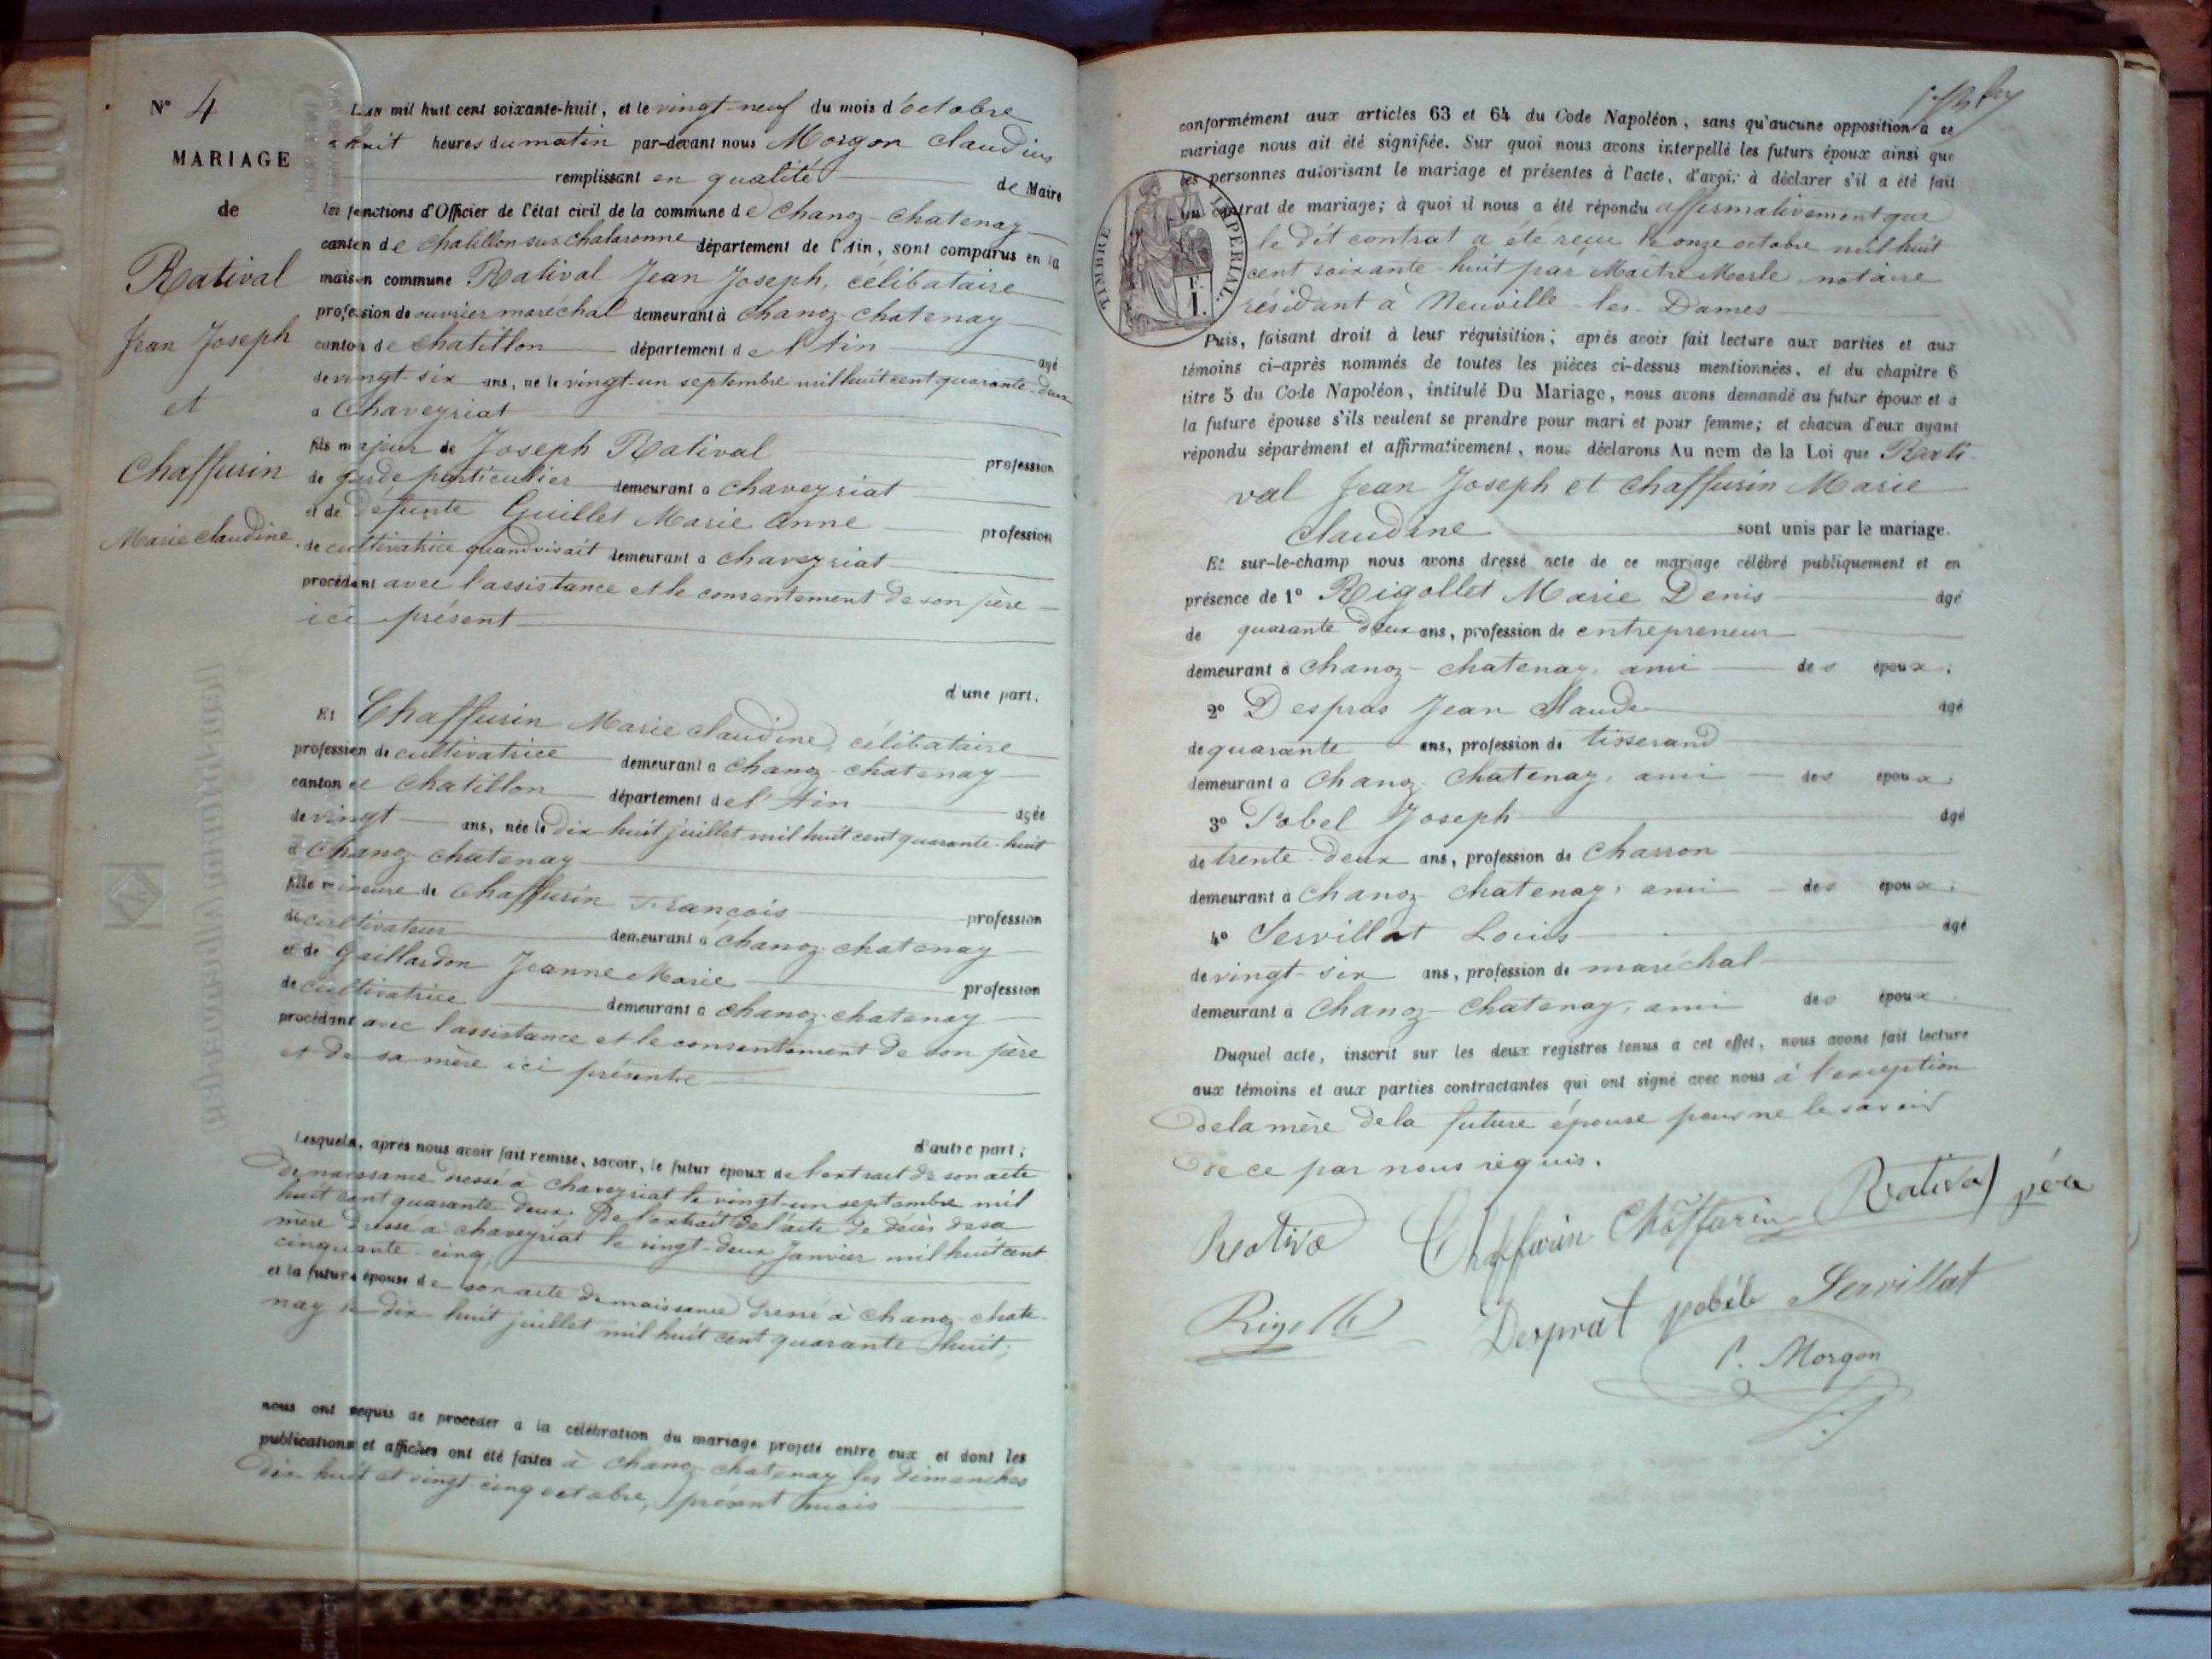 N° 4
MARIAGE
de
Ratival
Jean Joseph
et
Chaffurin
Marie Claudine.
L'an mil huit cent soixante-huit, et le vingt-neuf du mois d'octobre
a huit heures du matin par-devant nous Morgon Claudius
remplissant en qualité de Maire
les fonctions d'Officier de l'état civil de la commune de Chanoz-Chatenay
canton de Chatillon sur Chalaronne département de l'Ain, sont comparus en la
maison commune Ratival Jean Joseph, célibataire
profession de ouvrier maréchal demeurant à Chanoz-Chatenay
canton de Chatillon département de l'Ain agé
de vingt-six ans, né le vingt-un septembre mil huit cent quarante-deux
a Chaveyriat
fils majeur de Joseph Ratival profession
de garde particulier demeurant a Chaveyriat
et de défunte Guillet Marie Anne profession
de cultivatrice quand vivait demeurant a Chaveyriat
procédant avec l'assistance et le consentement de son père
ici présent
d'une part.
Et Chaffurin Marie Claudine, célibataire
profession de cultivatrice demeurant a Chanoz-Chatenay
canton de Chatillon département de l'Ain agée
de vingt ans, née le dix-huit juillet mil huit cent quarante-huit
a Chanoz-Chatenay
fille mineure de Chaffurin François profession
de cultivateur demeurant à Chanoz-Chatenay
et de Gaillardon Jeanne Marie profession
de cultivatrice demeurant a Chanoz-Chatenay
procédant avec l'assistance et le consentement de son père
et de sa mère ici présents
d'autre part;
Lesquels, après nous avoir fait remise, savoir, le futur époux de l'extrait de son acte
de naissance dressé à Chaveyriat le vingt-un septembre mil
huit cent quarante deux. De l'extrait de l'acte de décès de sa
mère dressé à Chaveyriat le vingt-deux Janvier mil huit cent
cinquante-cinq,
et la future épouse de son acte de naissance dressé à Chanoz-Chate-
nay le dix huit juillet mil huit cent quarante huit;
nous ont requis de procéder à la célébration du mariage projeté entre eux et dont les
publications et affiches ont été faites à Chanoz-Chatenay les dimanches
dix huit et vingt-cinq octobre, présent mois
conformément aux articles 63 et 64 du Code Napoléon, sans qu'aucune opposition à ce
mariage nous ait été signifiée. Sur quoi nous avons interpellé les futurs époux ainsi que
les personnes autorisant le mariage et présentes à l'acte, d'avoir à déclarer s'il a été fait
un contrat de mariage; à quoi il nous a été répondu affirmativement que
le dit contrat a été reçu le onze octobre mil huit
cent soixante-huit par Maître Merle, notaire
résidant à Neuville-les-Dames
TIMBRE IMPERIAL.
1 F.
Puis, faisant droit à leur réquisition; après avoir fait lecture aux parties et aux
témoins ci-après nommés de toutes les pièces ci-dessus mentionnées, et du chapitre 6
titre 5 du Code Napoléon, intitulé Du Mariage, nous avons demandé au futur époux et a
la future épouse s'ils veulent se prendre pour mari et pour femme; et chacun d'eux ayant
répondu séparément et affirmativement, nous déclarons Au nom de la Loi que Rati-
val Jean Joseph et Chaffurin Marie
Claudine sont unis par le mariage.
Et sur-le-champ nous avons dressé acte de ce mariage célébré publiquement et en
présence de 1° Rigollet Marie Denis âgé
de quarante deux ans, profession de entrepreneur
demeurant à Chanoz-Chatenay, ami des époux;
2° Despras Jean Claude âgé
de quarante ans, profession de tisserand
demeurant a Chanoz-Chatenay, ami des époux;
3° Pobel Joseph âgé
de trente-deux ans, profession de Charron
demeurant à Chanoz-Chatenay, ami des époux;
4° Servillat Louis âgé
de vingt-six ans, profession de maréchal
demeurant à Chanoz-Chatenay, ami des époux.
Duquel acte, inscrit sur les deux registres tenus à cet effet, nous avons fait lecture
aux témoins et aux parties contractantes qui ont signé avec nous à l'exception
de la mère de la future épouse pour ne le savoir
de ce par nous requis.
Chaffurin Chaffurin Ratival père
Desprat pobele Servillat
C. Morgon